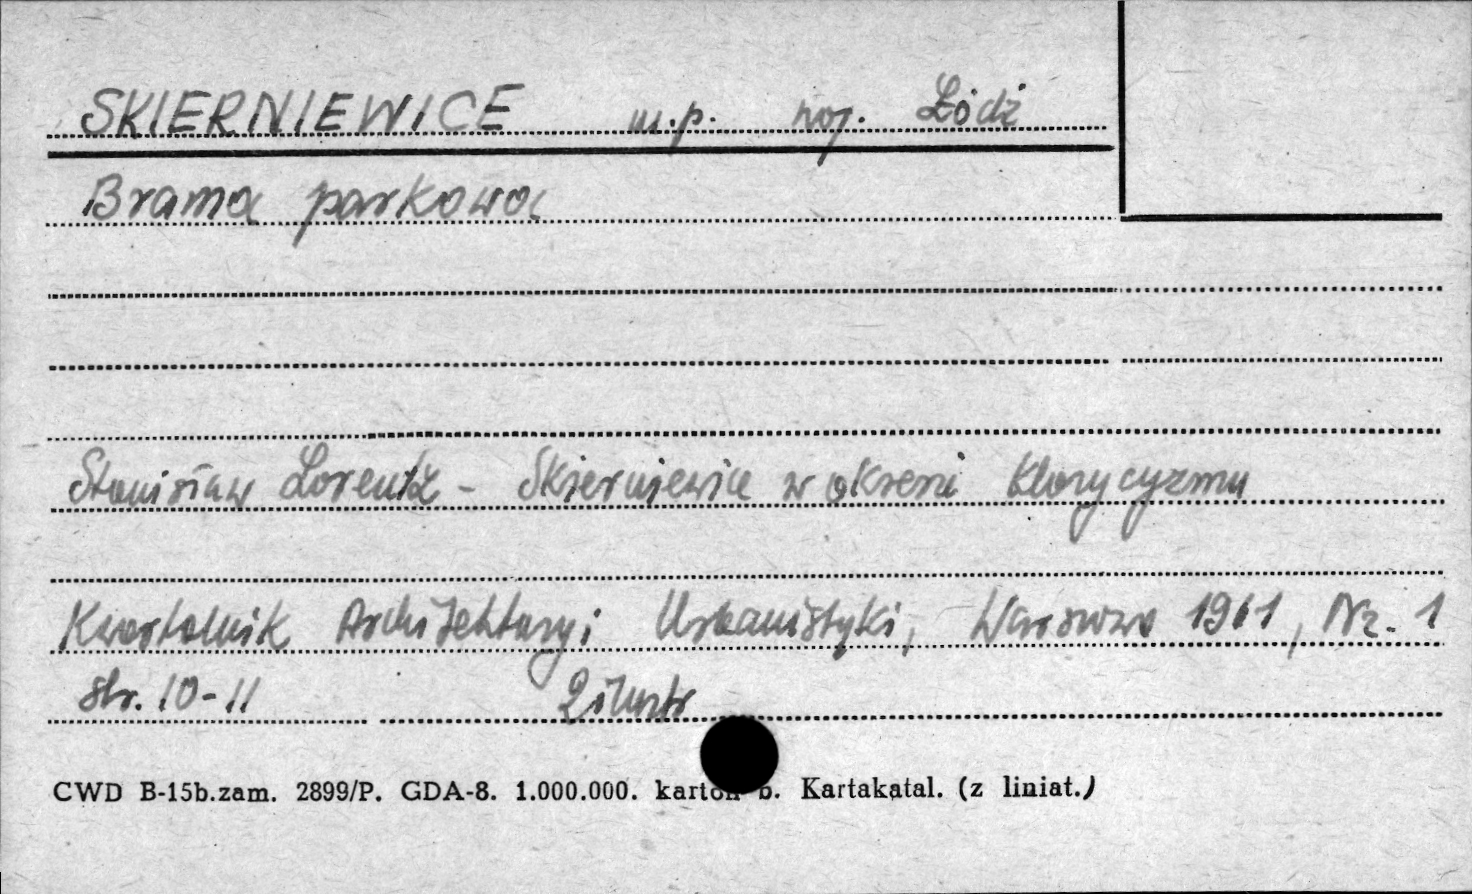 SKIERNIEWICE m.p. woj. Łódź
Brama parkowa
Stanisław Lorentz - Skierniewice w okresie klasycyzmu
Kwartalnik Architektury i Urbanistyki, Warszawa 1961, Nr. 1
str. 10-11 2 ilustr
CWD B-15b.zam. 2899/P. GDA-8. 1.000.000. karton b. Kartakatal. (z liniat.)